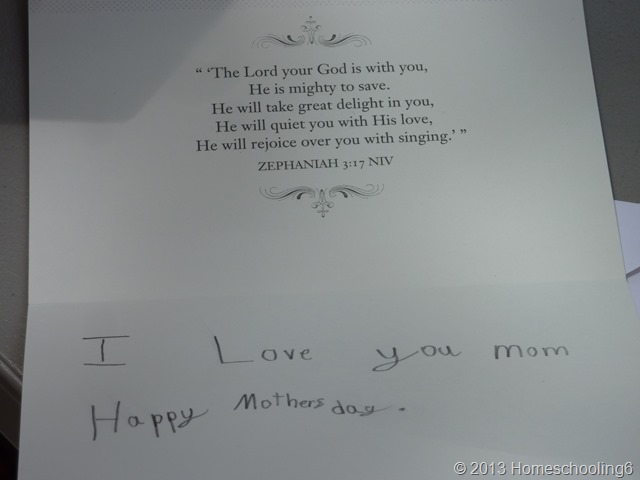 “ ‘The Lord your God is with you,
He is mighty to save.
He will take great delight in you,
He will quiet you with His love,
He will rejoice over you with singing.’ ”
ZEPHANIAH 3:17 NIV
I Love you mom
Happy Mothers day.
© 2013 Homeschooling6